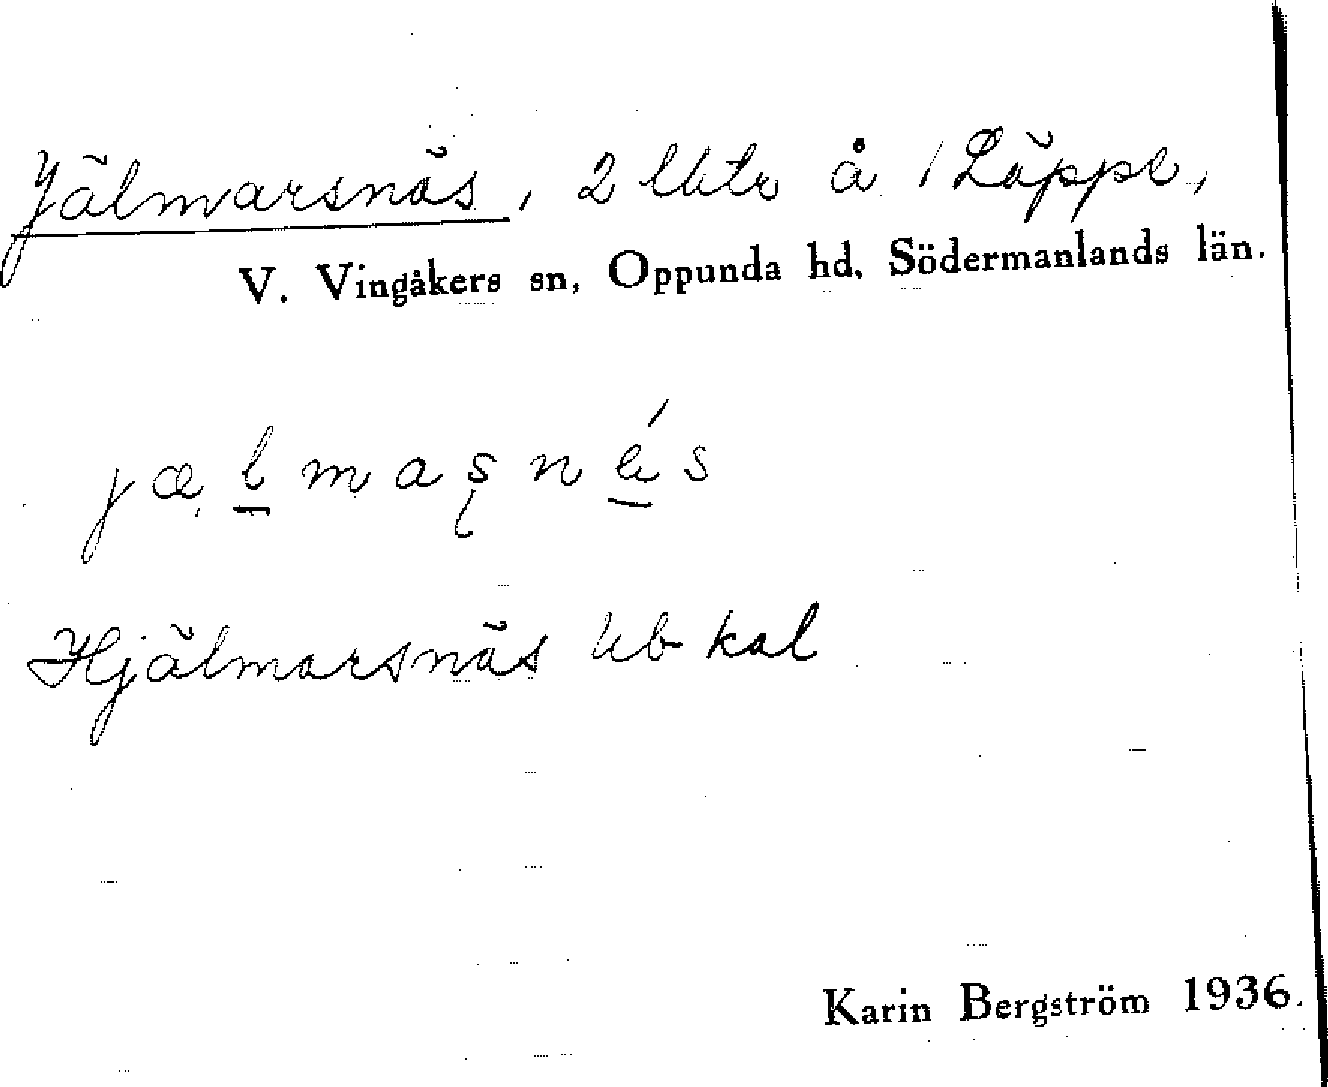 Jälmarsnäs, 2 lhtr å 1 Läppe,
V. Vingåkers sn, Oppunda hd, Södermanlands län.
jælmaṣnés
Hjälmarsnäs kal
Karin Bergström 1936.